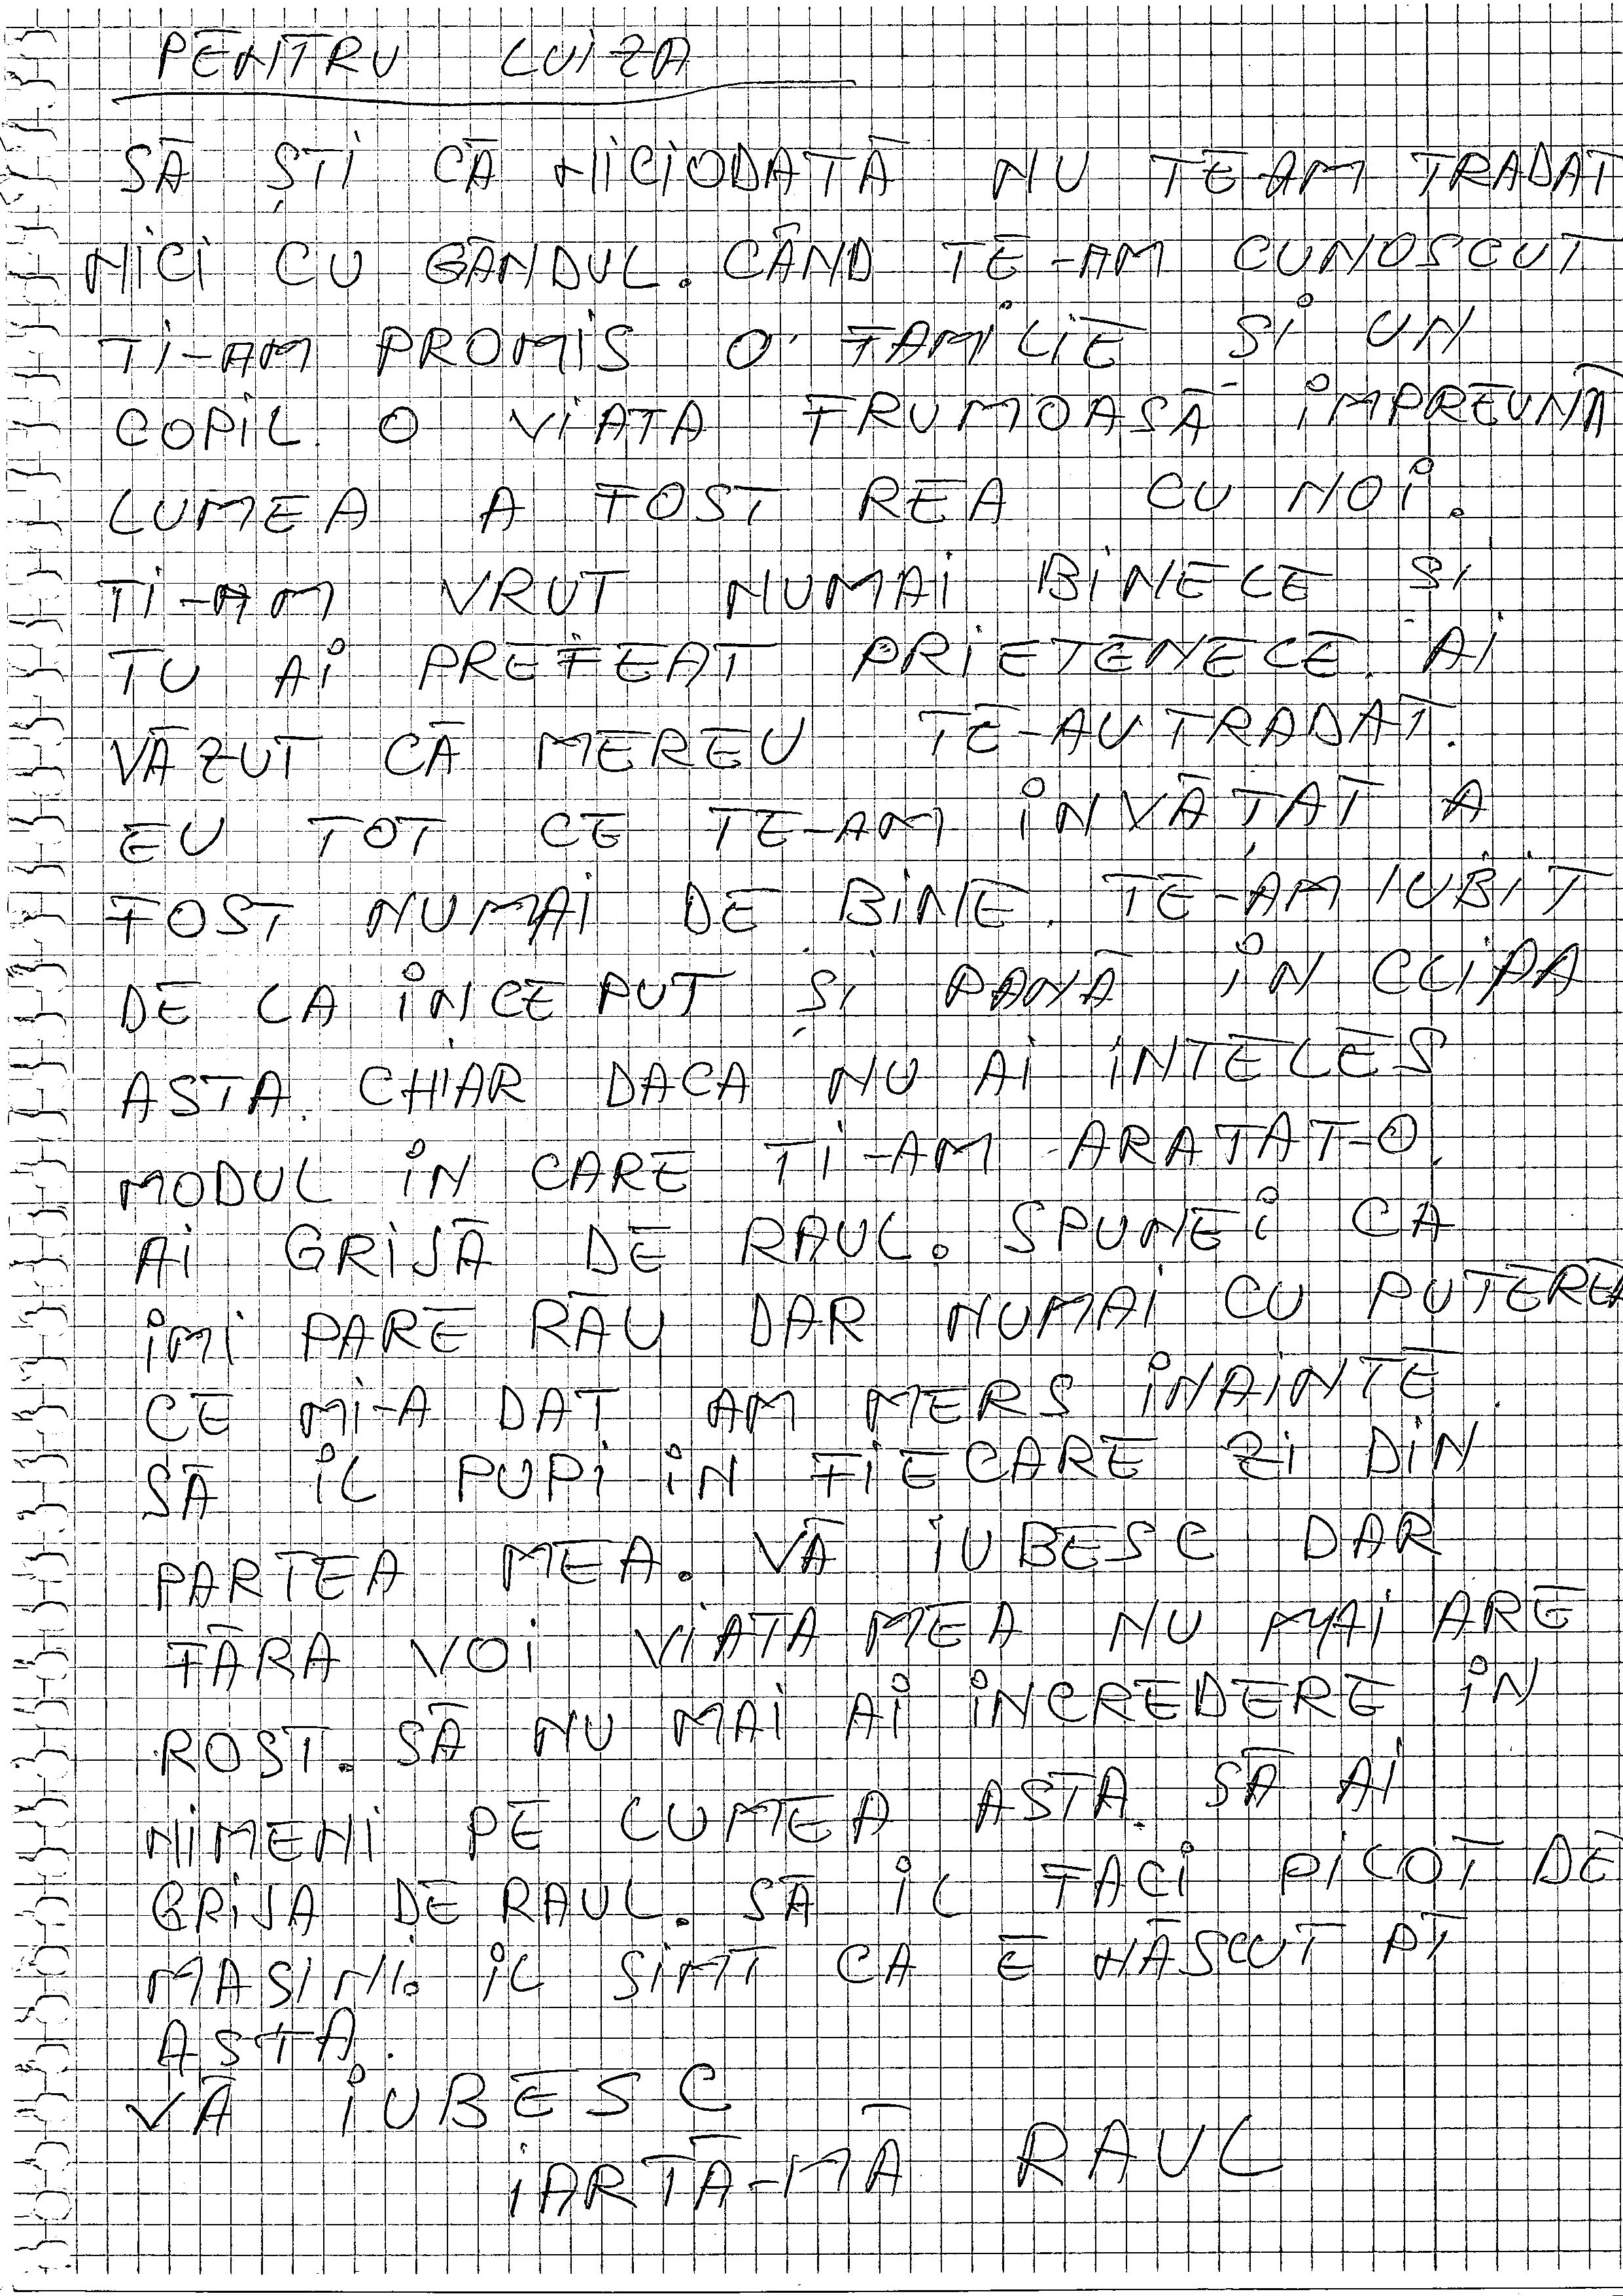 PENTRU LUIZA
SĂ ȘTI CĂ NICIODATĂ NU TE-AM TRADAT
NICI CU GÂNDUL. CÂND TE-AM CUNOSCUT
TI-AM PROMIS O FAMILIE SI UN
COPIL. O VIATA FRUMOASĂ IMPREUNĂ
LUMEA A FOST REA CU NOI.
TI-AM VRUT NUMAI BINELE SI
TU AI PREFEAT PRIETENELE. AI
VĂZUT CĂ MEREU TE-AU TRADAT.
EU TOT CE TE-AM INVĂȚAT A
FOST NUMAI DE BINE. TE-AM IUBIT
DE LA INCEPUT ȘI PANĂ IN CLIPA
ASTA. CHIAR DACA NU AI INTELES
MODUL IN CARE TI-AM ARATAT-O.
AI GRIJĂ DE RAUL. SPUNEI CA
IMI PARE RĂU DAR NUMAI CU PUTEREA
CE MI-A DAT AM MERS INAINTE.
SĂ IL PUPI IN FIECARE ZI DIN
PARTEA MEA. VĂ IUBESC DAR
FĂRA VOI VIATA MEA NU MAI ARE
ROST. SĂ NU MAI AI INCREDERE IN
NIMENI PE LUMEA ASTA. SĂ AI
GRIJA DE RAUL. SĂ IL FACI PILOT DE
MASINI. IL SIMT CA E NĂSCUT PT
ASTA.
VĂ IUBESC
IARTĂ-MĂ RAUL